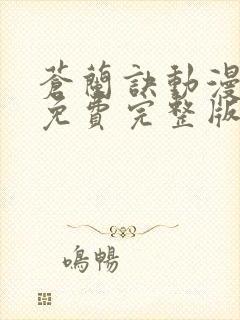 蒼蘭訣動漫
免費完整版
鳴暢